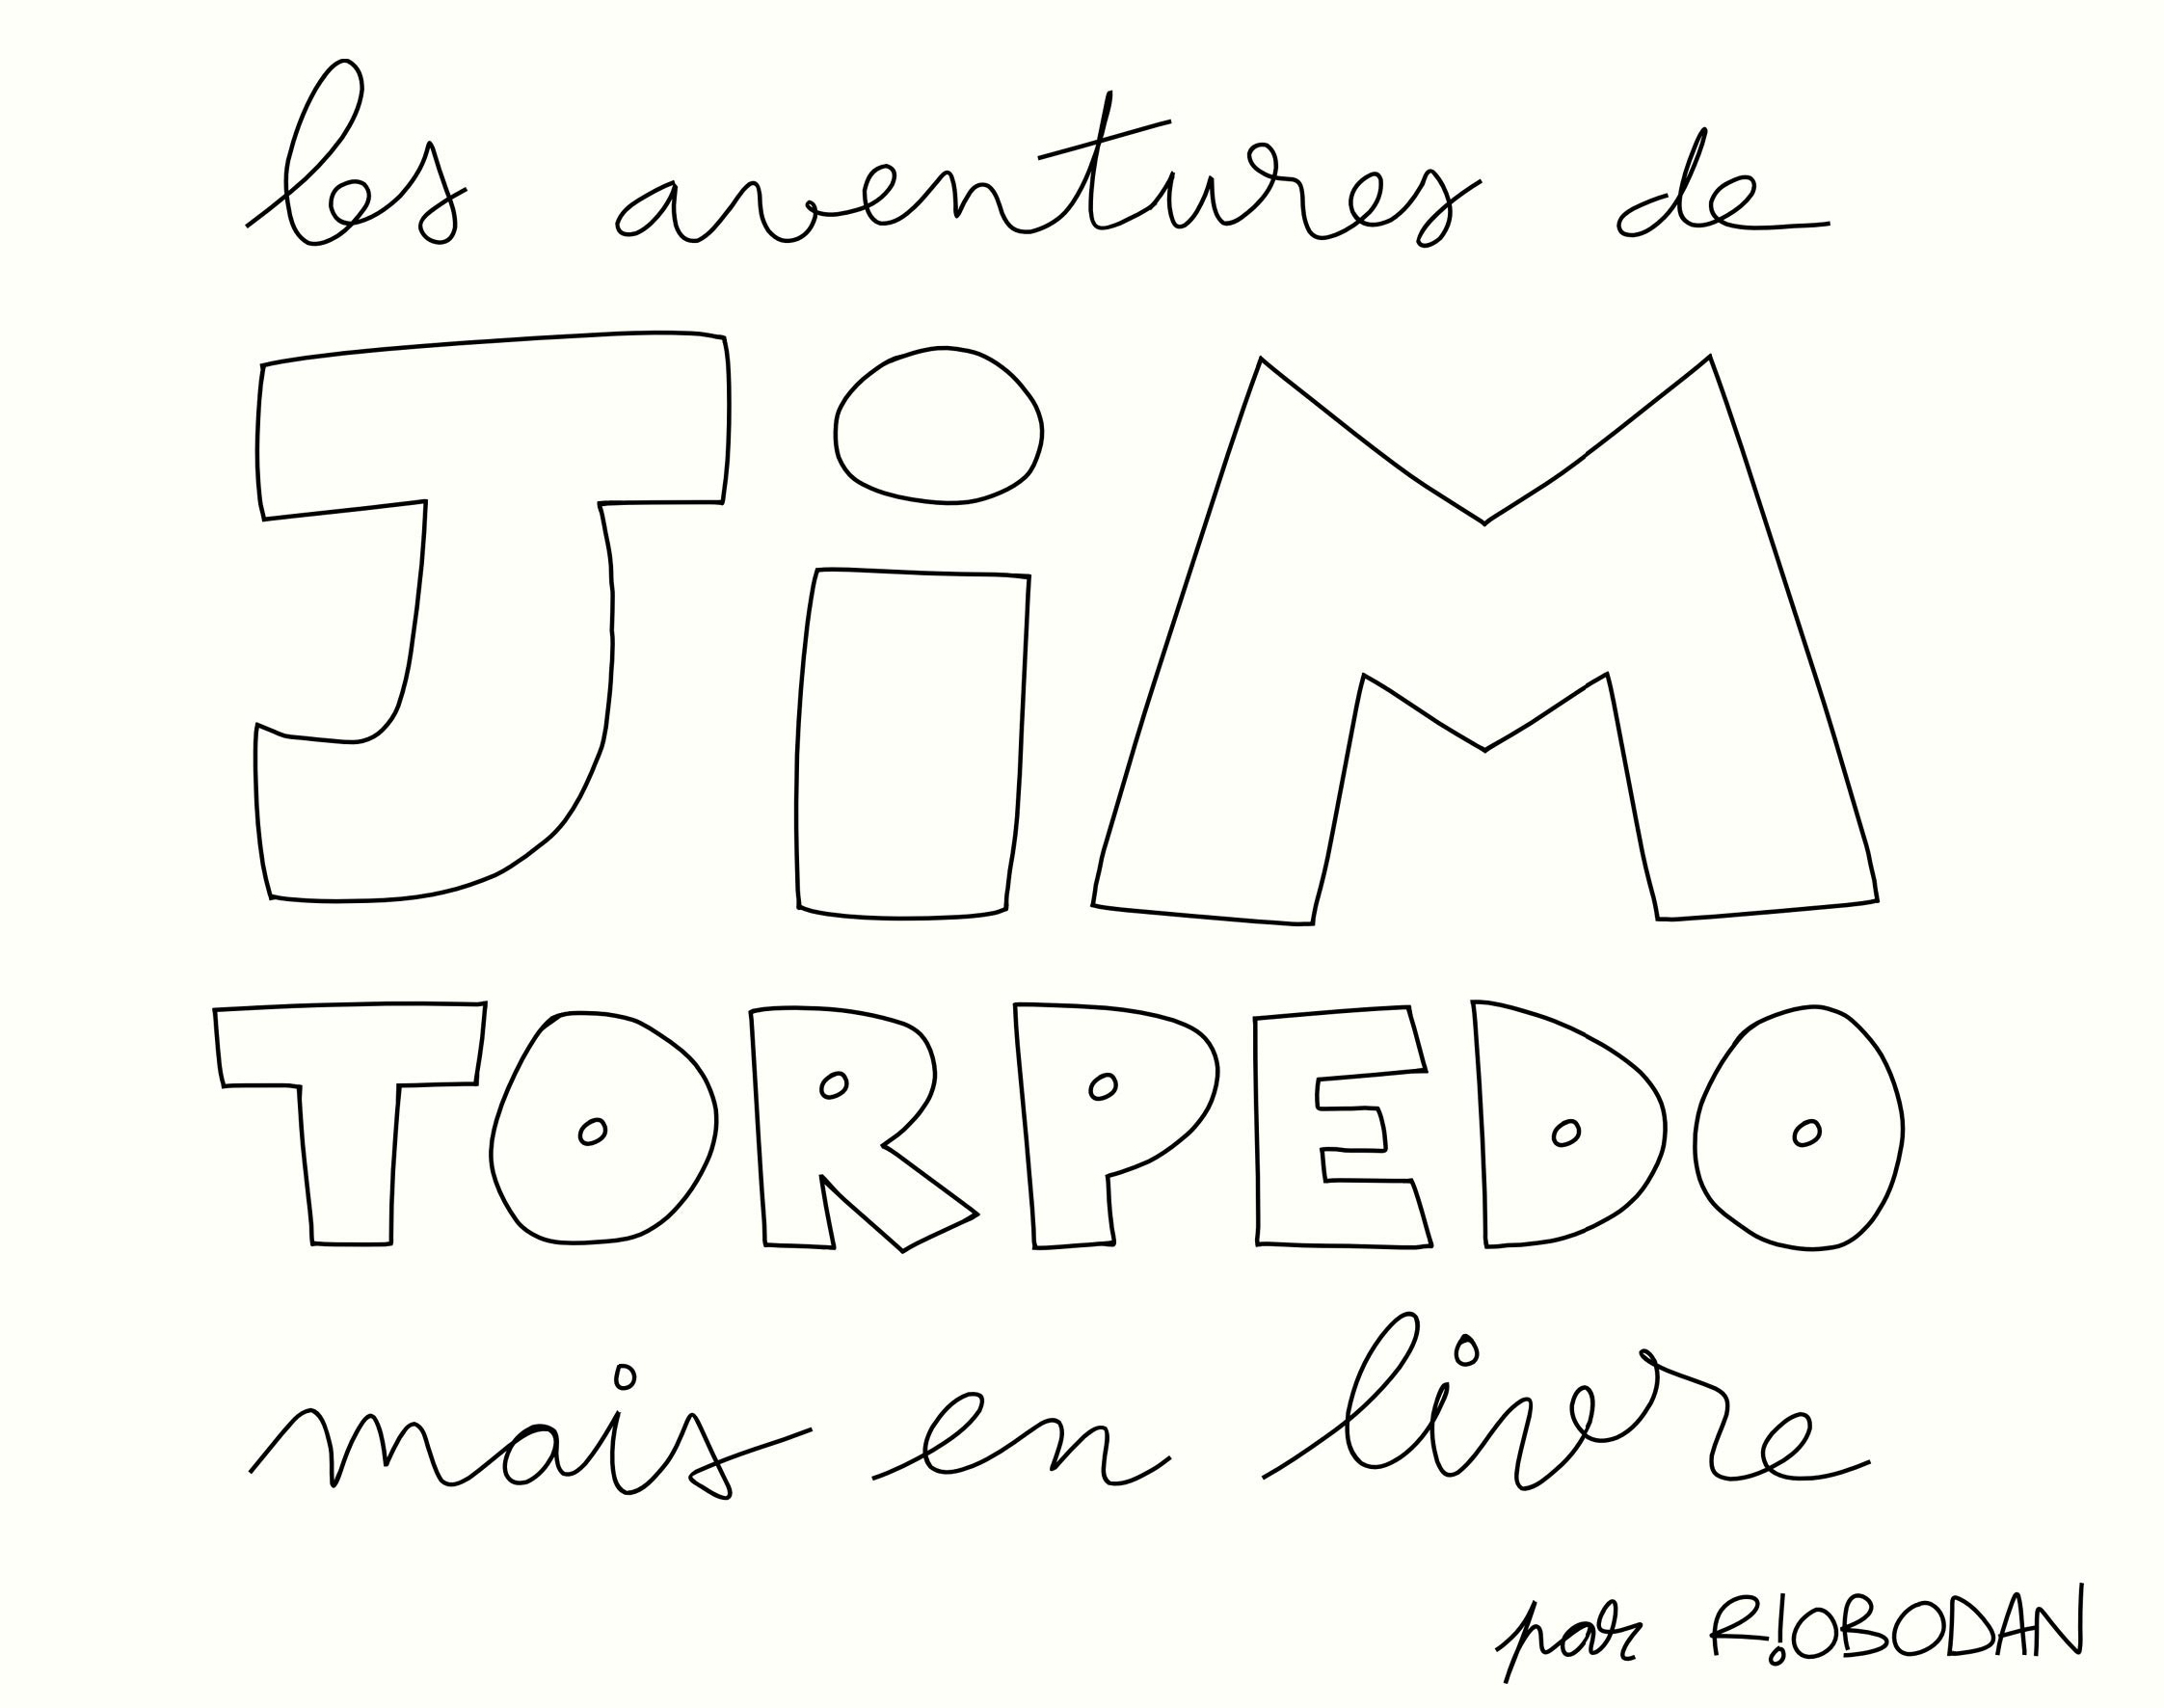 les aventures de
JiM
TORPEDO
mais en livre
par R!OBODAN